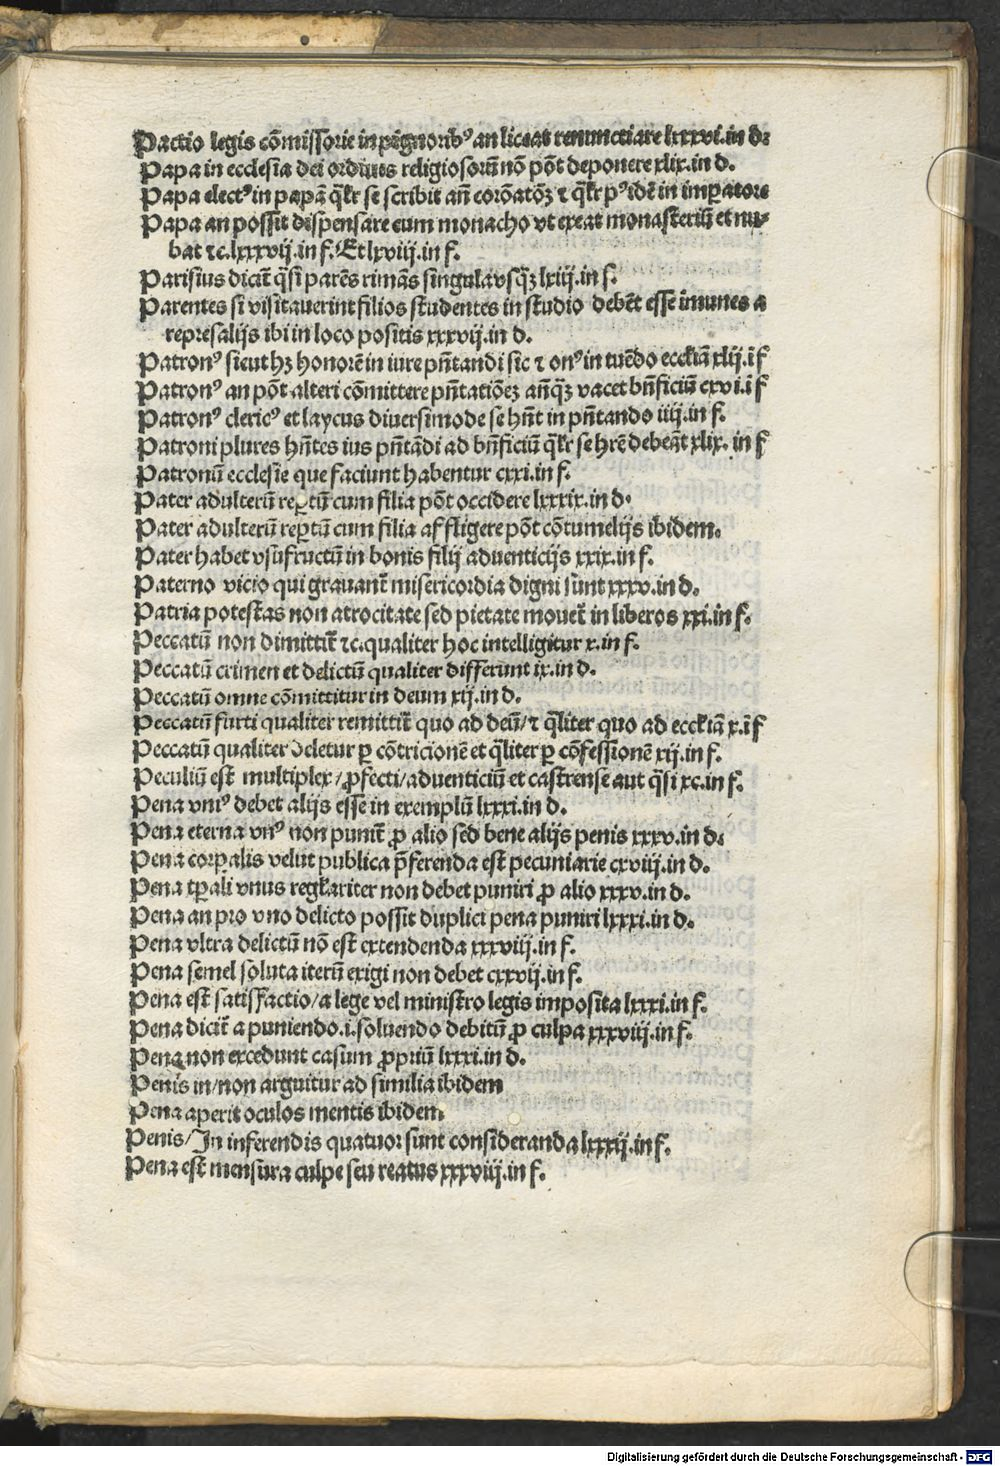 Pactio legis cōmissorie in pignoribꝰ an liceat renunctiare lxxxvi.in d.
Papa in ecclesia dei ordines religiosorū nō pōt deponere xlix.in d.
Papa electꝰ in papā q̄lr se scribit an̄ corōatōꝫ ⁊ q̄lr pꝰ idē in imꝑatore
Papa an possit dispensare cum monacho vt exeat monasteriū et nu-
bat ⁊c.lxxxvij.in f. Et lxviij.in f.
Parisius dicit̄ q̄si parēs rimās singula vsq̄ꝫ lxiij.in f.
Parentes si visitauerint filios studentes in studio debēt esse īmunes a
represalijs ibi in loco positis xxxvij.in d.
Patronꝰ sicut hꝫ honorē in iure pn̄tandi sic ⁊ onꝰ in tuēdo eccl̄iā xlij.ī f
Patronꝰ an pōt alteri cōmittere pn̄tatiōeꝫ anq̄ꝫ vacet bn̄ficiū cxvi.ī f
Patronꝰ clericꝰ et laycus diuersimode se hn̄t in pn̄tando iiij.in f.
Patroni plures hn̄tes ius pn̄tādi ad bn̄ficiū q̄lr se hr̄e debeāt xlix. in f
Patronū ecclesie que faciunt habentur cxxi.in f.
Pater adulterū reꝑtū cum filia pōt occidere lxxxix.in d.
Pater adulterū reꝑtū cum filia affligere pōt cōtumelijs ibidem.
Pater habet vsufructū in bonis filij aduenticijs xxix.in f.
Paterno vicio qui grauant̄ misericordia digni sunt xxxv.in d.
Patria potestas non atrocitate sed pietate mouet̄ in liberos xxi.in f.
Peccatū non dimittit̄ ⁊c.qualiter hoc intelligitur x.in f.
Peccatū crimen et delictū qualiter differunt ix.in d.
Peccatū omne cōmittitur in deum xij.in d.
Peccatū furti qualiter remittit̄ quo ad deū/⁊ q̄liter quo ad eccl̄iā x.ī f
Peccatū qualiter ꝺeletur ꝑ cōtricionē et q̄liter ꝑ cōfessionē xij.in f.
Peculiū est multiplex/ꝓfecti/aduenticiū et castrense aut q̄si xc.in f.
Pena vniꝰ debet alijs esse in exemplū lxxxi.in d.
Pena eterna vnꝰ non punit̄ ꝓ alio sed bene alijs penis xxxv.in d.
Pena corꝑalis velut publica p̄ferenda est pecuniarie cxviij.in d.
Pena tꝑali vnus regl̄ariter non debet puniri ꝓ alio xxxv.in d.
Pena an pro vno delicto possit duplici pena puniri lxxxi.in d.
Pena vltra delictū nō est extendenda xxxviij.in f.
Pena semel soluta iterū exigi non debet cxxvij.in f.
Pena est satisfactio/a lege vel ministro legis imposita lxxxi.in f.
Pena dicit̄ a puniendo.i.soluendo debitū ꝓ culpa xxxviij.in f.
Pena non excedunt casum ꝓpriū lxxxi.in d.
Penis in/non arguitur ad similia ibidem
Pena aperit oculos mentis ibidem.
Penis/In inferendis quatuor sunt consideranda lxxxij.in f.
Pena est mensura culpe seu reatus xxxviij.in f.
Digitalisierung gefördert durch die Deutsche Forschungsgemeinschaft - DFG